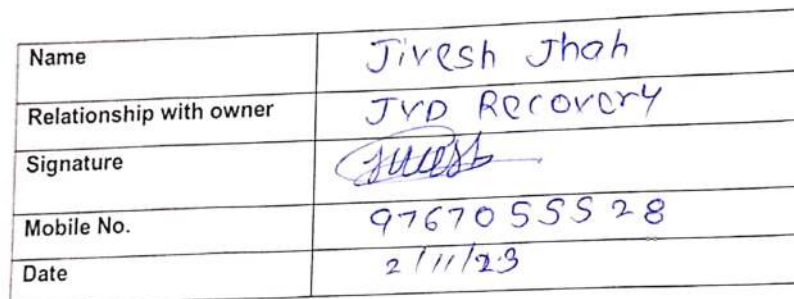 Name Jivesh Jhah
Relationship with owner JVD Recovery
Signature
Mobile No. 9767055528
Date 2/11/23